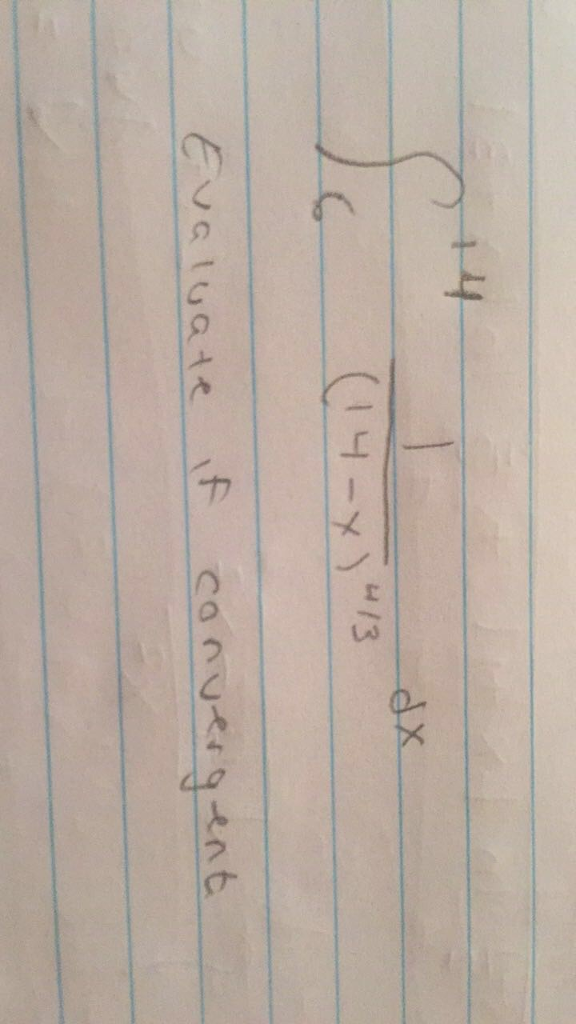 ∫₆¹⁴ 1/(14-x)^4/3 dx
Evaluate if convergent